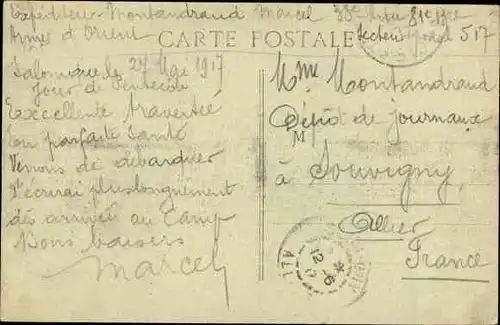 Expéditeur Montandraud Marcel 38e 81e
Armée d'Orient Secteur postal 517
CARTE POSTALE
Salonique le 27 Mai 1917
Jour de Pentecôte
Excellente traversée
En parfaite santé
Venons de débarquer
T'écrirai plus longuement
dès arrivée au Camp
Bons baisers
Marcel
Mme Montandraud
Dépôt de journaux
M
à Souvigny
Allier
France